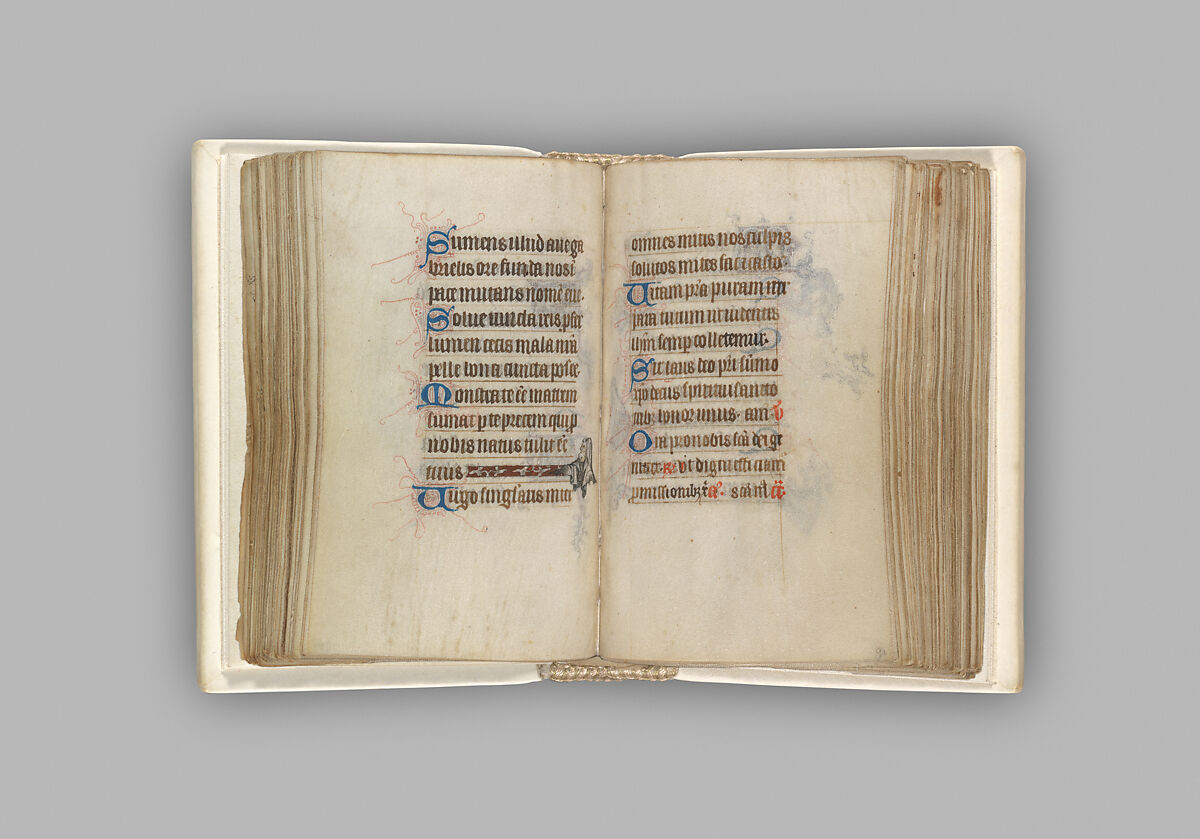 Sumens illud ave ga
brielis ore funda nos i
pace mutans nomē eve.
Solve vincla reis pfer
lumen cecis mala nrā
pelle bona cuncta posce.
Monstra te eē matrem
sumat p te precem qui p
nobis natus tulit eē
tuus
Virgo singlaris int
omnes mitis nos culpis
solutos mites fac & castos.
Vitam prā puram iter
para tutum ut videntes
ihm semp colletemur.
Sit laus deo pri sūmo
xpo decus spiritui sancto
tribz honor unus. am̄ v̄
Ora pro nobis scā dei ge
nitrix. R v̄t digni efficiam
pmissionibz